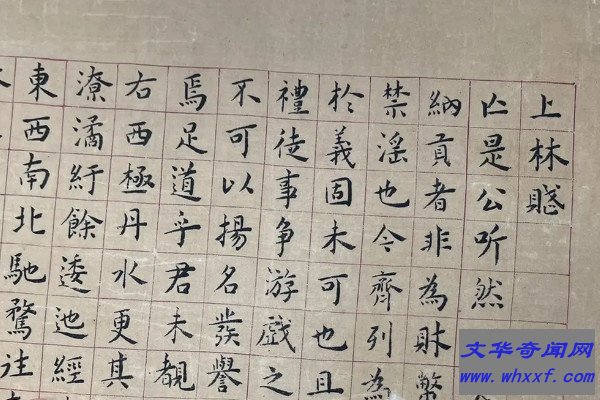 上林賦
亡是公听然
納貢者非為財幣
禁淫也今齊列為
於義固未可也且
禮徒事争游戲之
不可以揚名發譽
焉足道乎君未覩
右西極丹水更其
潦潏紆餘逶迤經
東西南北馳騖往
文华奇闻网
www.whxxf.com